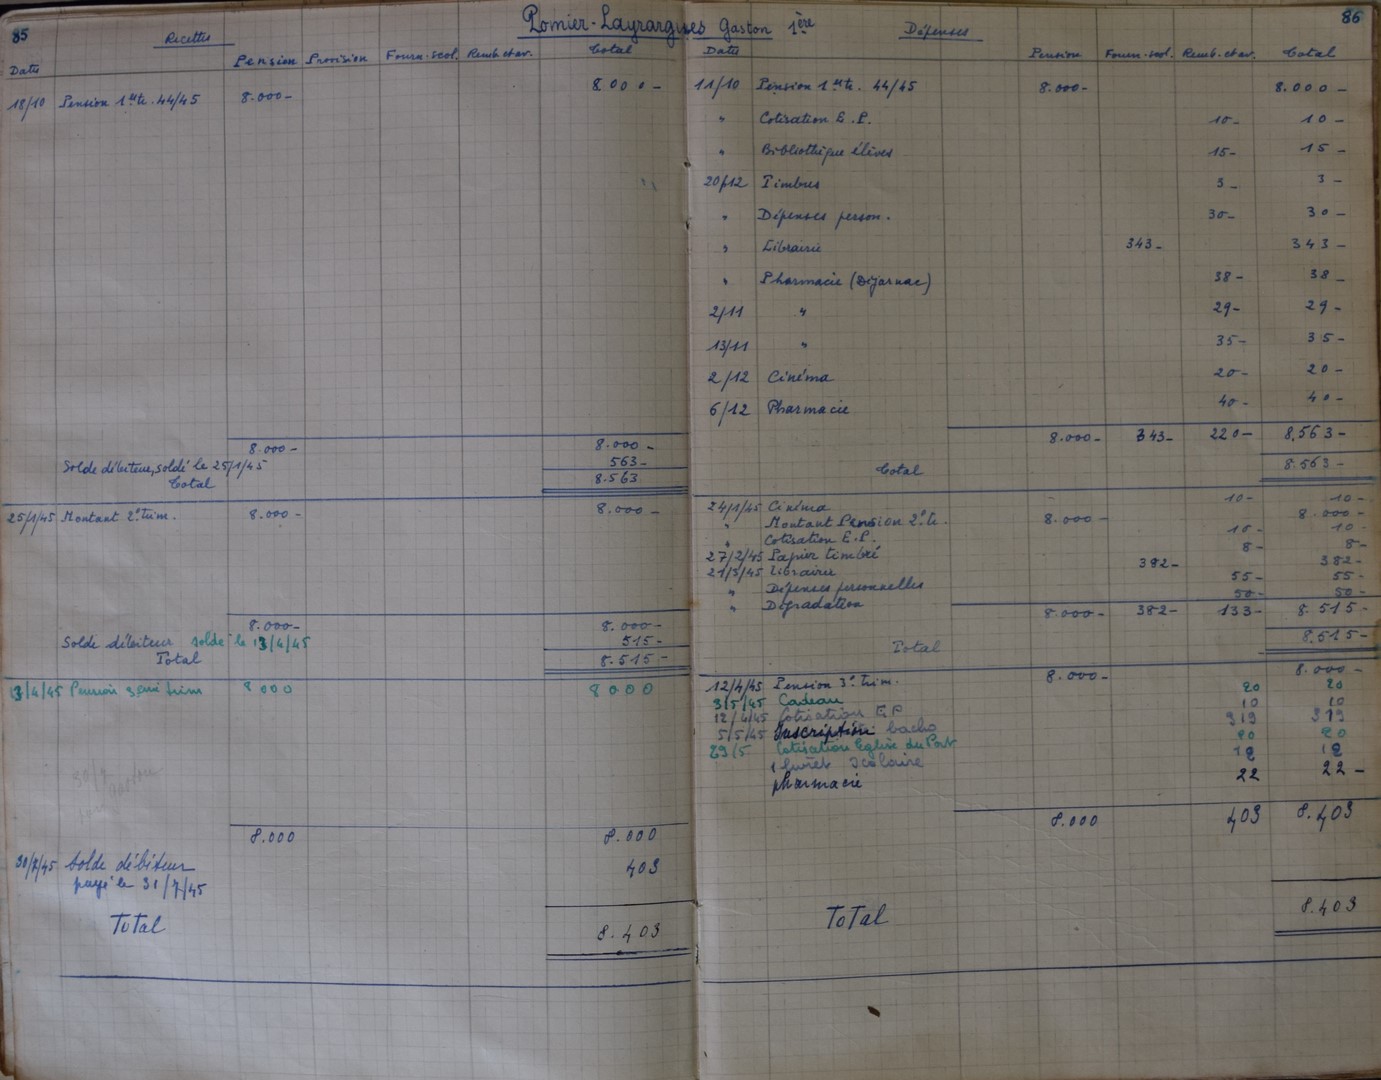 85
Pomier-Layrargues Gaston 1ère
86
Recettes
Dates Pension Provision Fourn-scol. Remb. et av. Total
18/10 Pension 1er te. 44/45 8.000- 8.000-
8.000- 8.000-
Solde débiteur, soldé le 25/1/45 563-
Total 8.563
25/1/45 Montant 2e. trim. 8.000- 8.000-
8.000- 8.000-
Solde débiteur soldé le 13/4/45 515-
Total 8.515-
13/4/45 Pension 3eme trim 8000 8000
8.000 8.000
30/7/45 Solde débiteur 403
payé le 31/7/45
Total 8.403
Dépenses
Dates Pension Fourn-scol. Remb. et av. Total
11/10 Pension 1er te. 44/45 8.000- 8.000-
" Cotisation E.P. 10- 10-
" Bibliothèque élèves 15- 15-
20/12 Timbres 3- 3-
" Dépenses person. 30- 30-
" Librairie 343- 343-
" Pharmacie (Dejarnac) 38- 38-
2/11 " 29- 29-
13/11 " 35- 35-
2/12 Cinéma 20- 20-
6/12 Pharmacie 40- 40-
8.000- 343- 220- 8.563-
Total 8.563-
24/1/45 Cinéma 10- 10-
" Montant Pension 2e. te. 8.000- 8.000-
" Cotisation E.P. 10- 10-
27/2/45 Papier timbré 8- 8-
21/3/45 Librairie 382- 382-
" Dépenses personnelles 55- 55-
" Dégradation 50- 50-
8.000- 382- 133- 8.515-
Total 8.515-
12/4/45 Pension 3e. trim. 8.000- 8.000-
3/5/45 Cadeau 20 20
12/4/45 Cotisation E.P 10 10
5/5/45 Inscription bacho 319 319
29/5 Cotisation Eglise du Port 20 20
1 livret scolaire 12 12
pharmacie 22 22-
8.000 403 8.403
Total 8.403